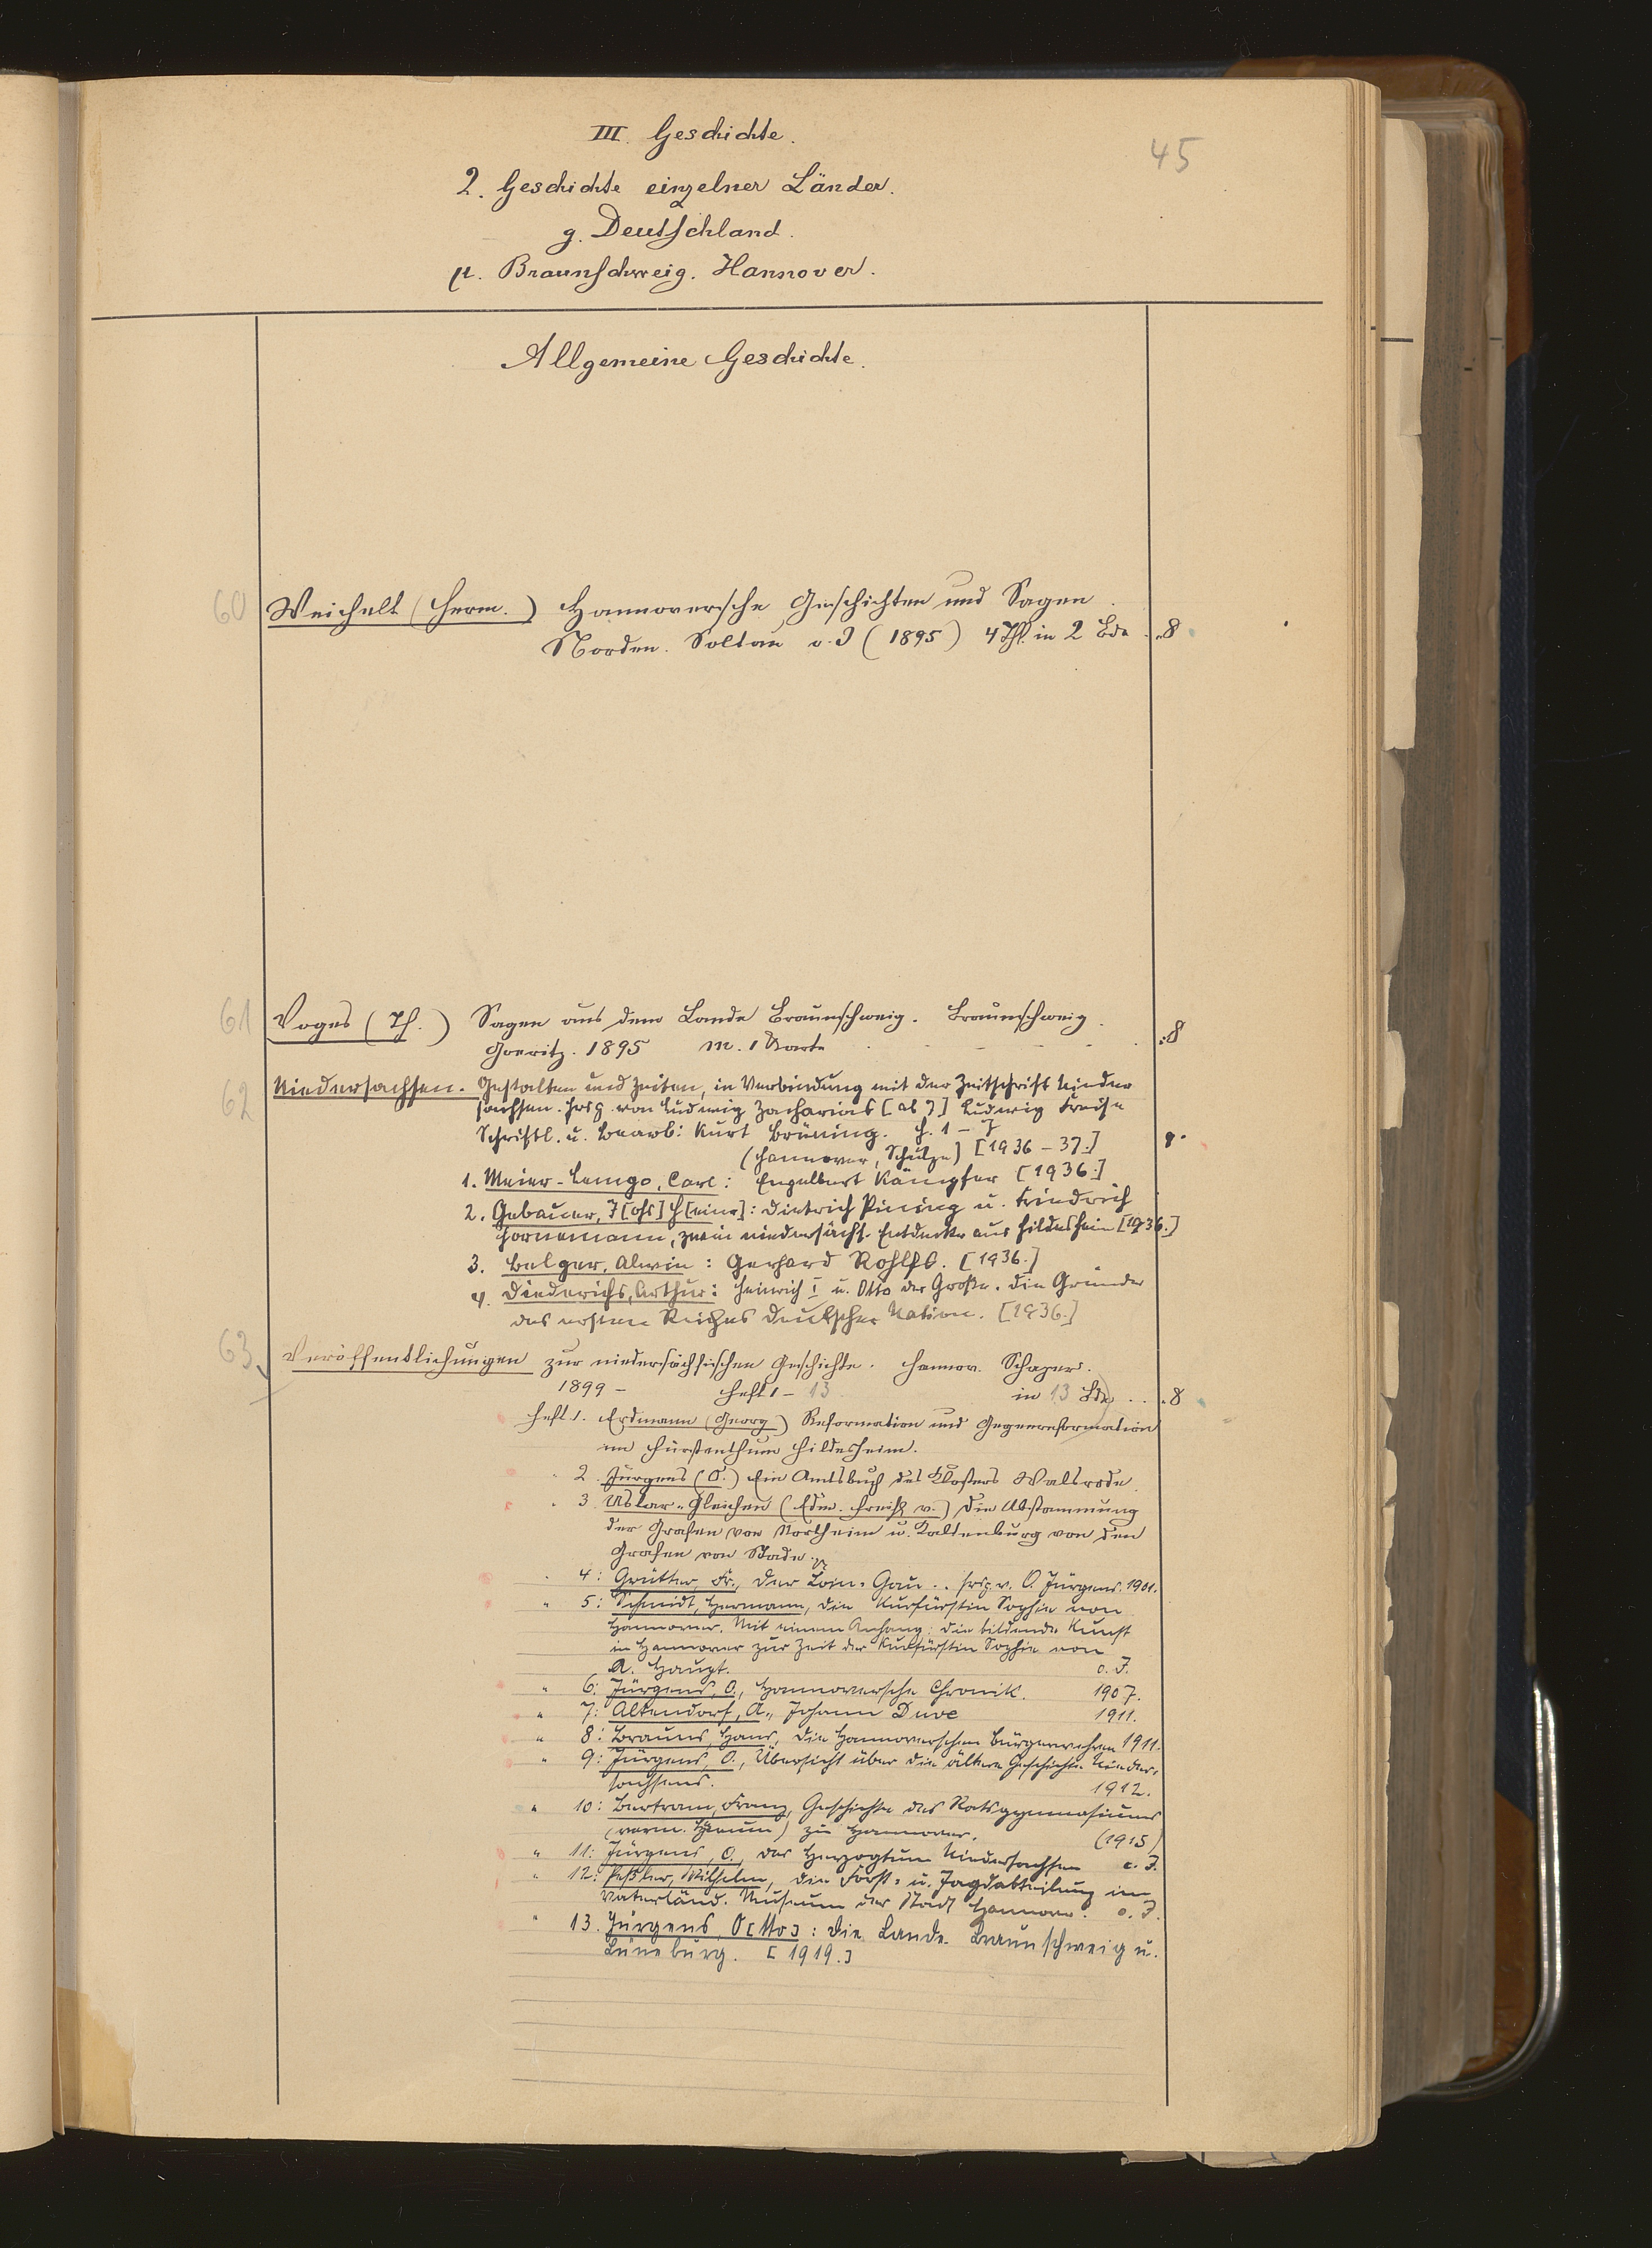 III. Geschichte.
45
2. Geschichte einzelner Länder.
g. Deutschland.
μ. Braunschweig. Hannover.
Allgemeine Geschichte.
60 Weichelt (Herm.) Hannoversche Geschichten und Sagen.
Norden. Soltau o. J (1895) 4 Thl. in 2 Bde. 8
61 Voges (Th.) Sagen aus dem Lande Braunschweig. Braunschweig.
Goeritz. 1895 m. 1 Karte . - - - . :8
62 Niedersachsen. Gestalten und Zeiten, in Verbindung mit der Zeitschrift Nieder
sachsen. hrsg. von Ludwig Zacharias [ab 7] Ludwig Freise
Schriftl. u. Bearb: Kurt Brüning. H. 1 - 7
(Hannover, Schulze) [1936 - 37.] 8.
1. Meier-Lemgo, Carl: Engelbert Kämpfer [1936.]
2. Gebauer, J[ohs] H[einr]: Dietrich Pining u. Friedrich
Hornemann, zwei niedersächs. Entdecker aus Hildesheim [1936.]
3. Belger, Alwin: Gerhard Rohlfs. [1936.]
4. Diederichs, Arthur: Heinrich I u. Otto der Große. Die Gründer
des ersten Reiches Deutscher Nation. [1936.]
63 Veröffentlichungen zur niedersächsischen Geschichte. Hannov. Schaper.
1899 - Heft 1 - 13 in 13 Bde .. :8
Heft 1. Erdmann (Georg) Reformation und Gegenreformation
im Fürstenthum Hildesheim.
" 2. Jürgens (O.) Ein Amtsbuch des Klosters Walsrode.
" 3. Uslar-Gleichen (Edm. Freih. v.) Die Abstammung
der Grafen von Northeim u. Katlenburg von den
Grafen von Stade.
" 4: Grütter, Fr., Der Loin-Gau .. hrsg v. O. Jürgens. 1901.
" 5: Schmidt, Hermann, die Kurfürstin Sophie von
Hannover. Mit einem Anhang: die bildende Kunst
in Hannover zur Zeit der Kurfürstin Sophie von
A. Haupt. o. J.
" 6: Jürgens, O., Hannoversche Chronik. 1907.
" 7: Altendorf, A., Johann Duve 1911.
" 8: Brauns, Hans, die Hannoverschen Bürgerwehren 1911.
" 9: Jürgens, O., Übersicht über die ältere Geschichte Nieder-
sachsens. 1912.
" 10: Bertram, Franz, Geschichte des Ratsgymnasiums
(vorm. Lyceum) zu Hannover. (1915)
" 11: Jürgens, O., das Herzogtum Niedersachsen o. J.
" 12: Peßler, Wilhelm, die Forst- u. Jagdabteilung im
Vaterländ. Museum der Stadt Hannover. o. J.
" 13. Jürgens, O[tto]: Die Lande Braunschweig u.
Lüneburg. [1919.]